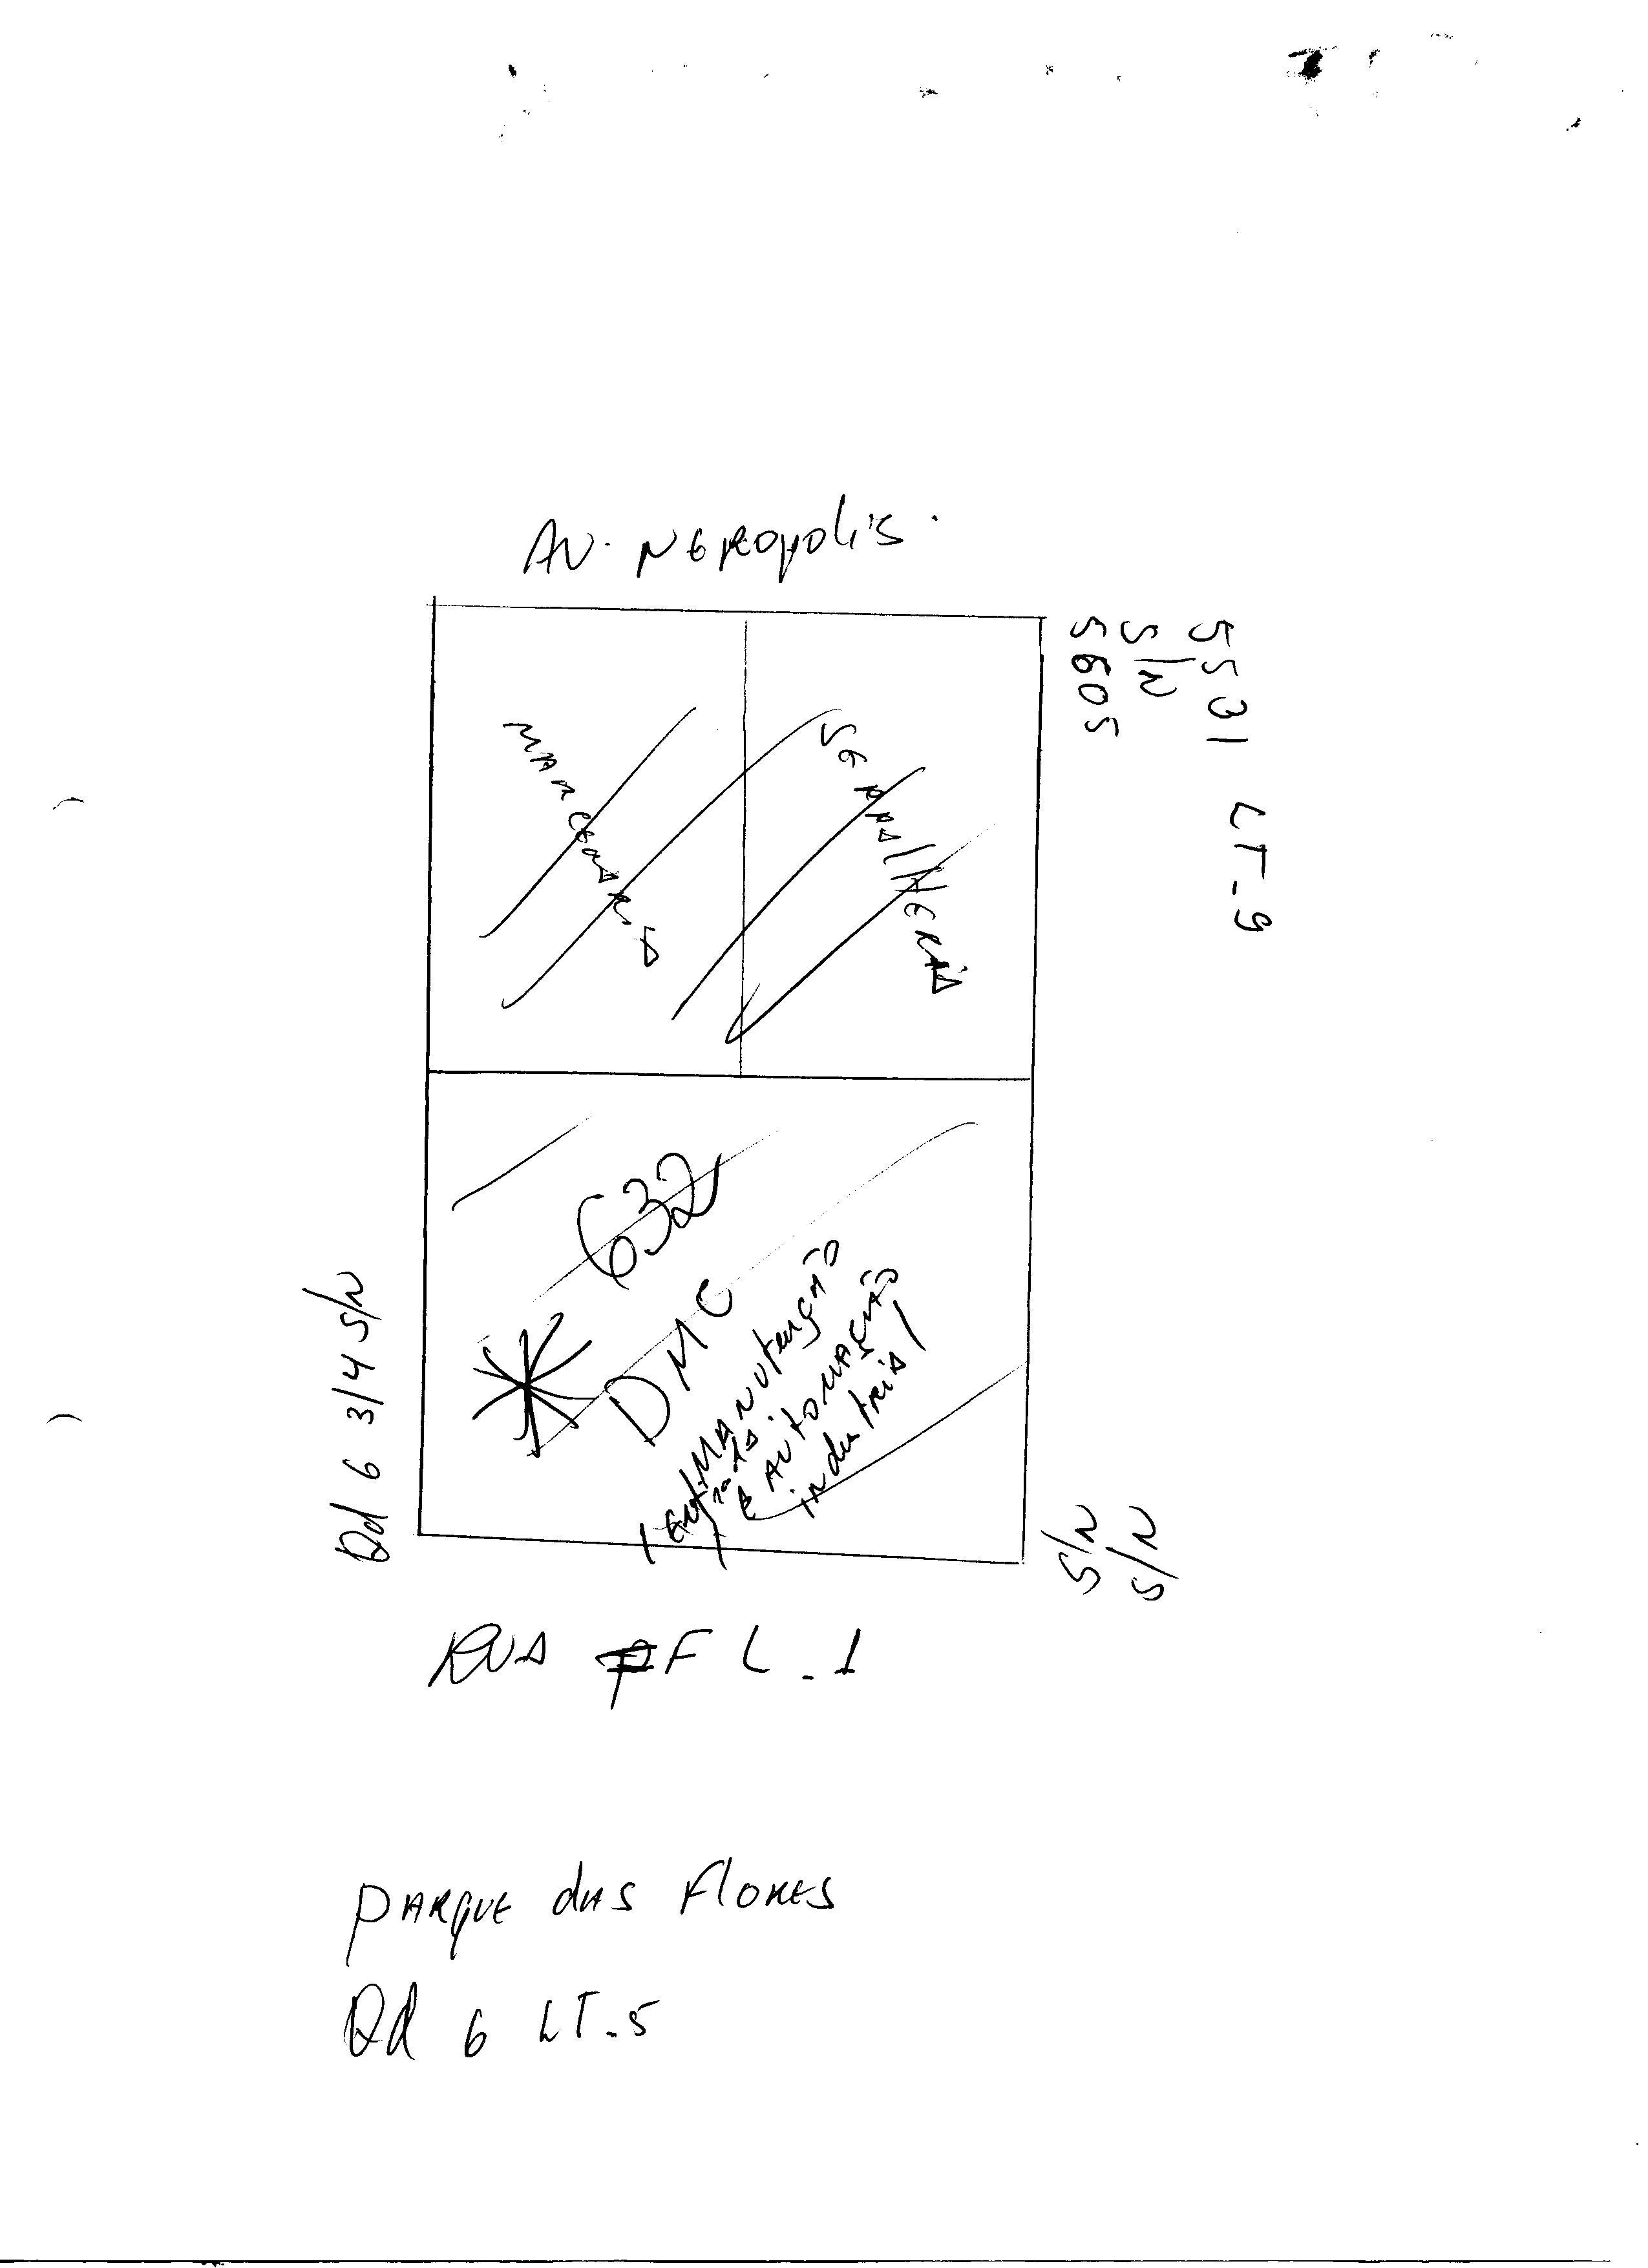 AV. NERopolis.
5531 LT-9
S/N
5605
MARCENARIA
SERRALHERIA
632
DMC
MANUTENÇÃO
E AUTOMAÇÃO
industrial
Entrada
Qd 6 3/4 S/N
S/N
S/N
RUA PF L-1
PARQUE dAS FloRES
Qd 6 LT-5